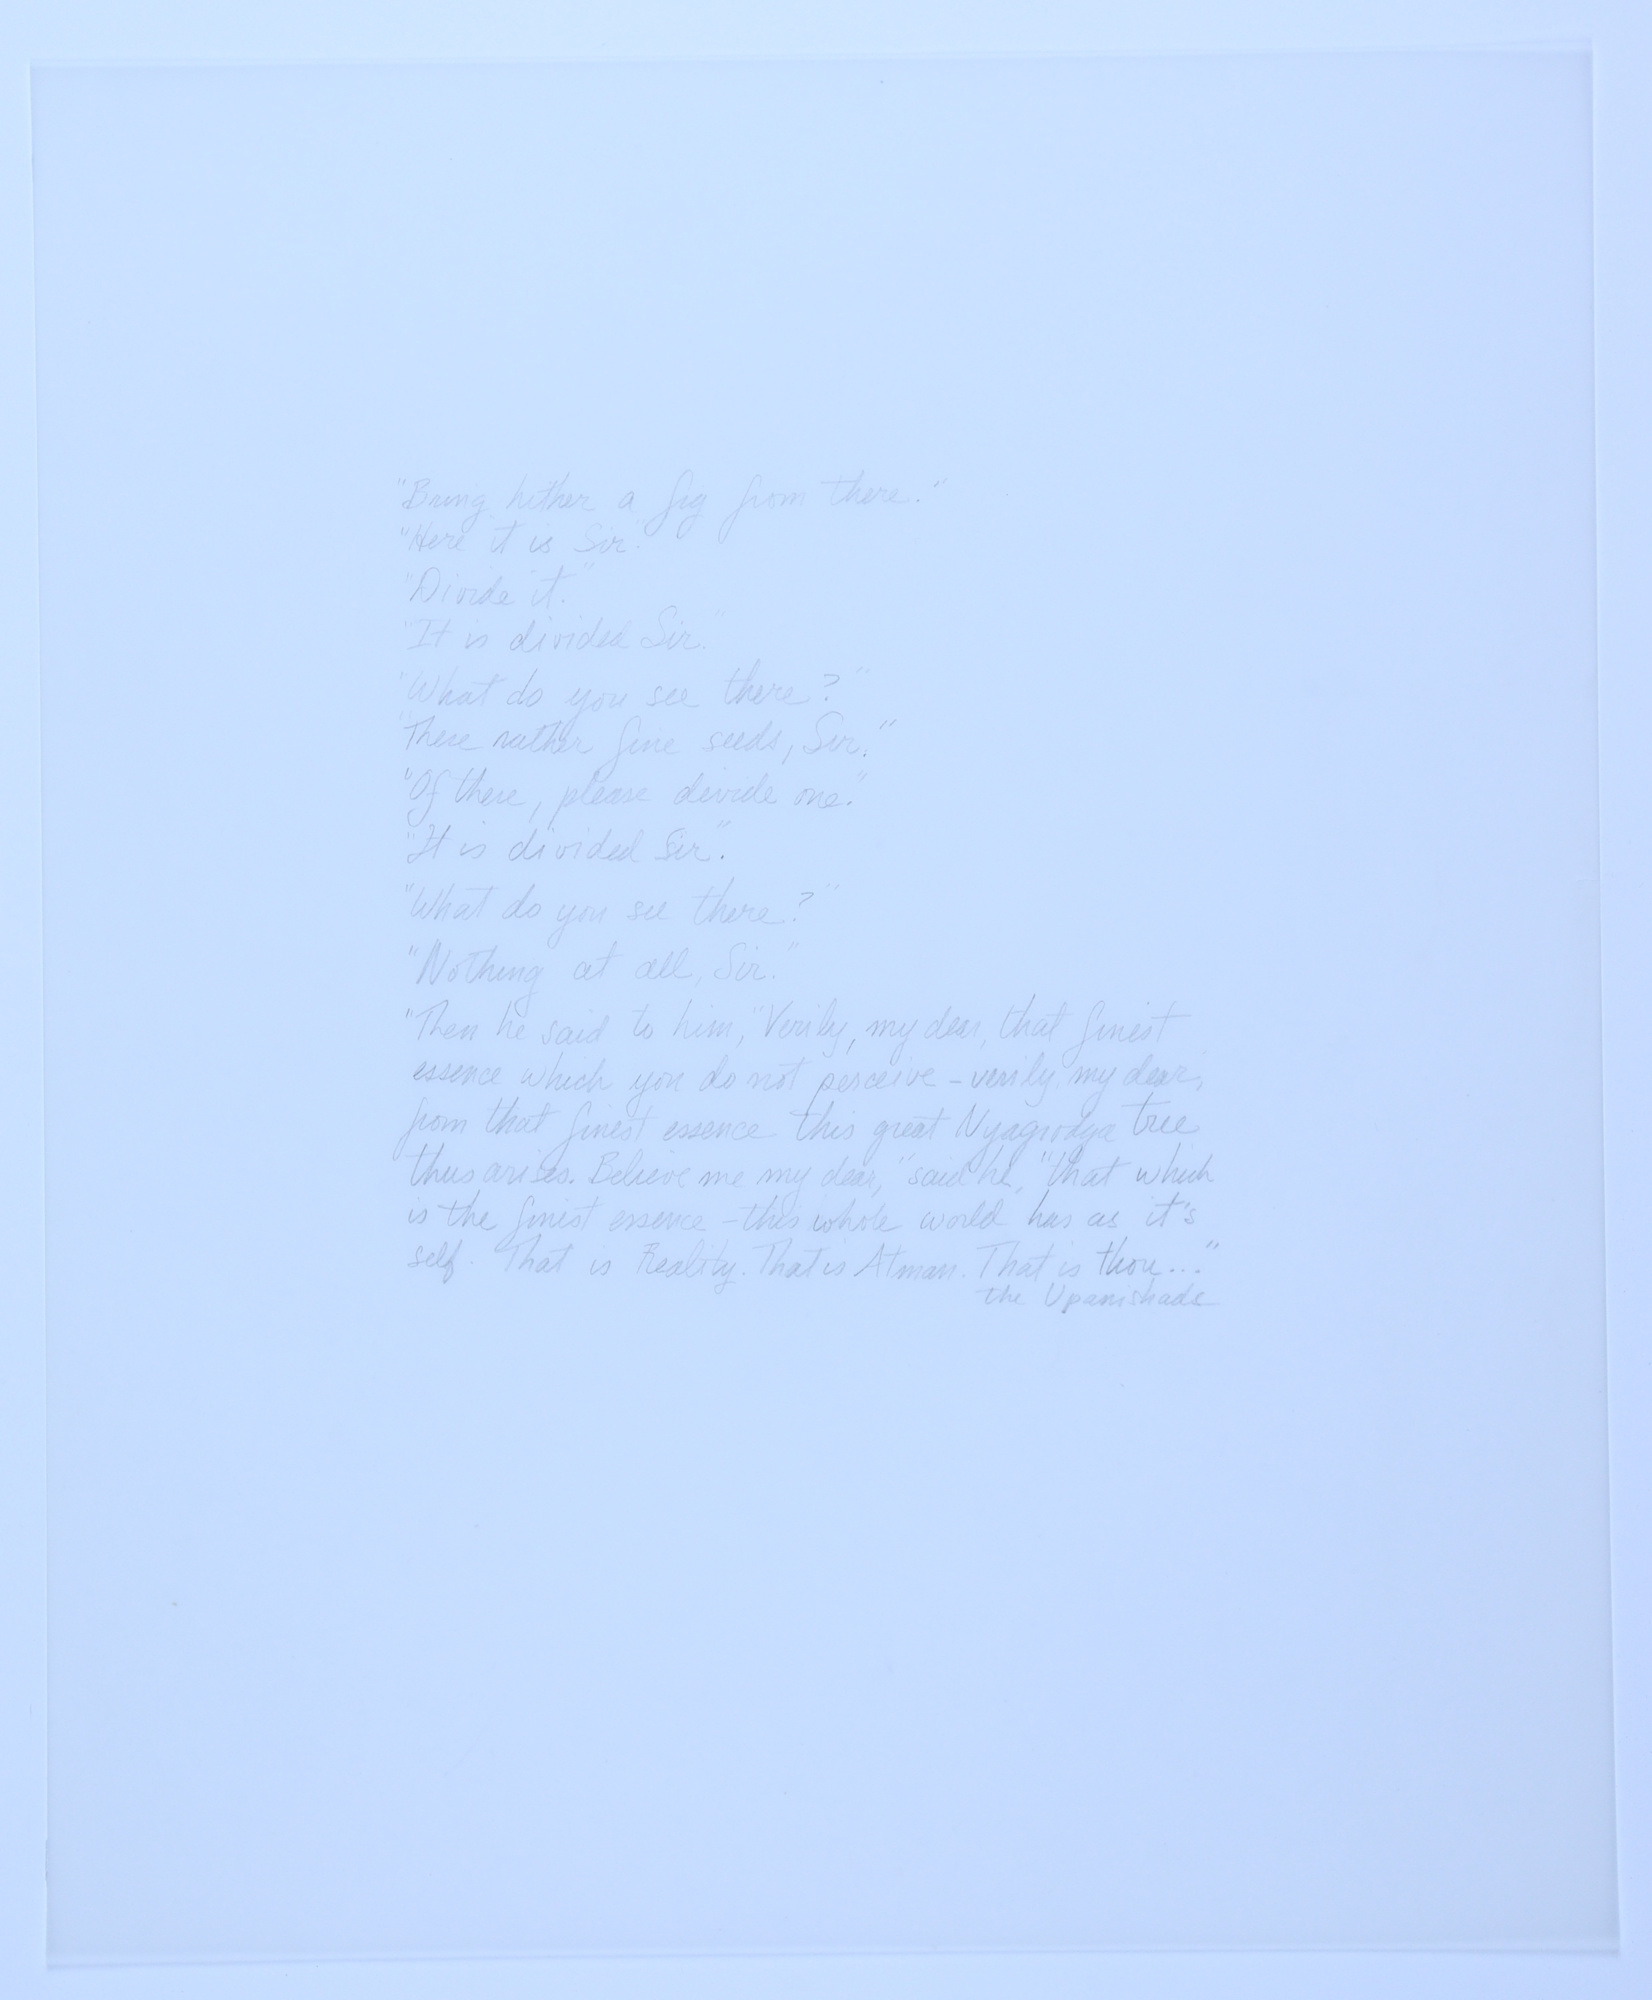 "Bring hither a fig from there."
"Here it is Sir."
"Divide it."
"It is divided Sir."
"What do you see there?"
"These rather fine seeds, Sir."
"Of these, please divide one."
"It is divided Sir".
"What do you see there?"
"Nothing at all, Sir."
"Then he said to him, "Verily, my dear, that finest
essence which you do not perceive - verily my dear,
from that finest essence this great Nyagrodga tree
thus arises. Believe me my dear," said he, "that which
is the finest essence - this whole world has as it's
self. That is Reality. That is Atman. That is thou..."
the Upanishads